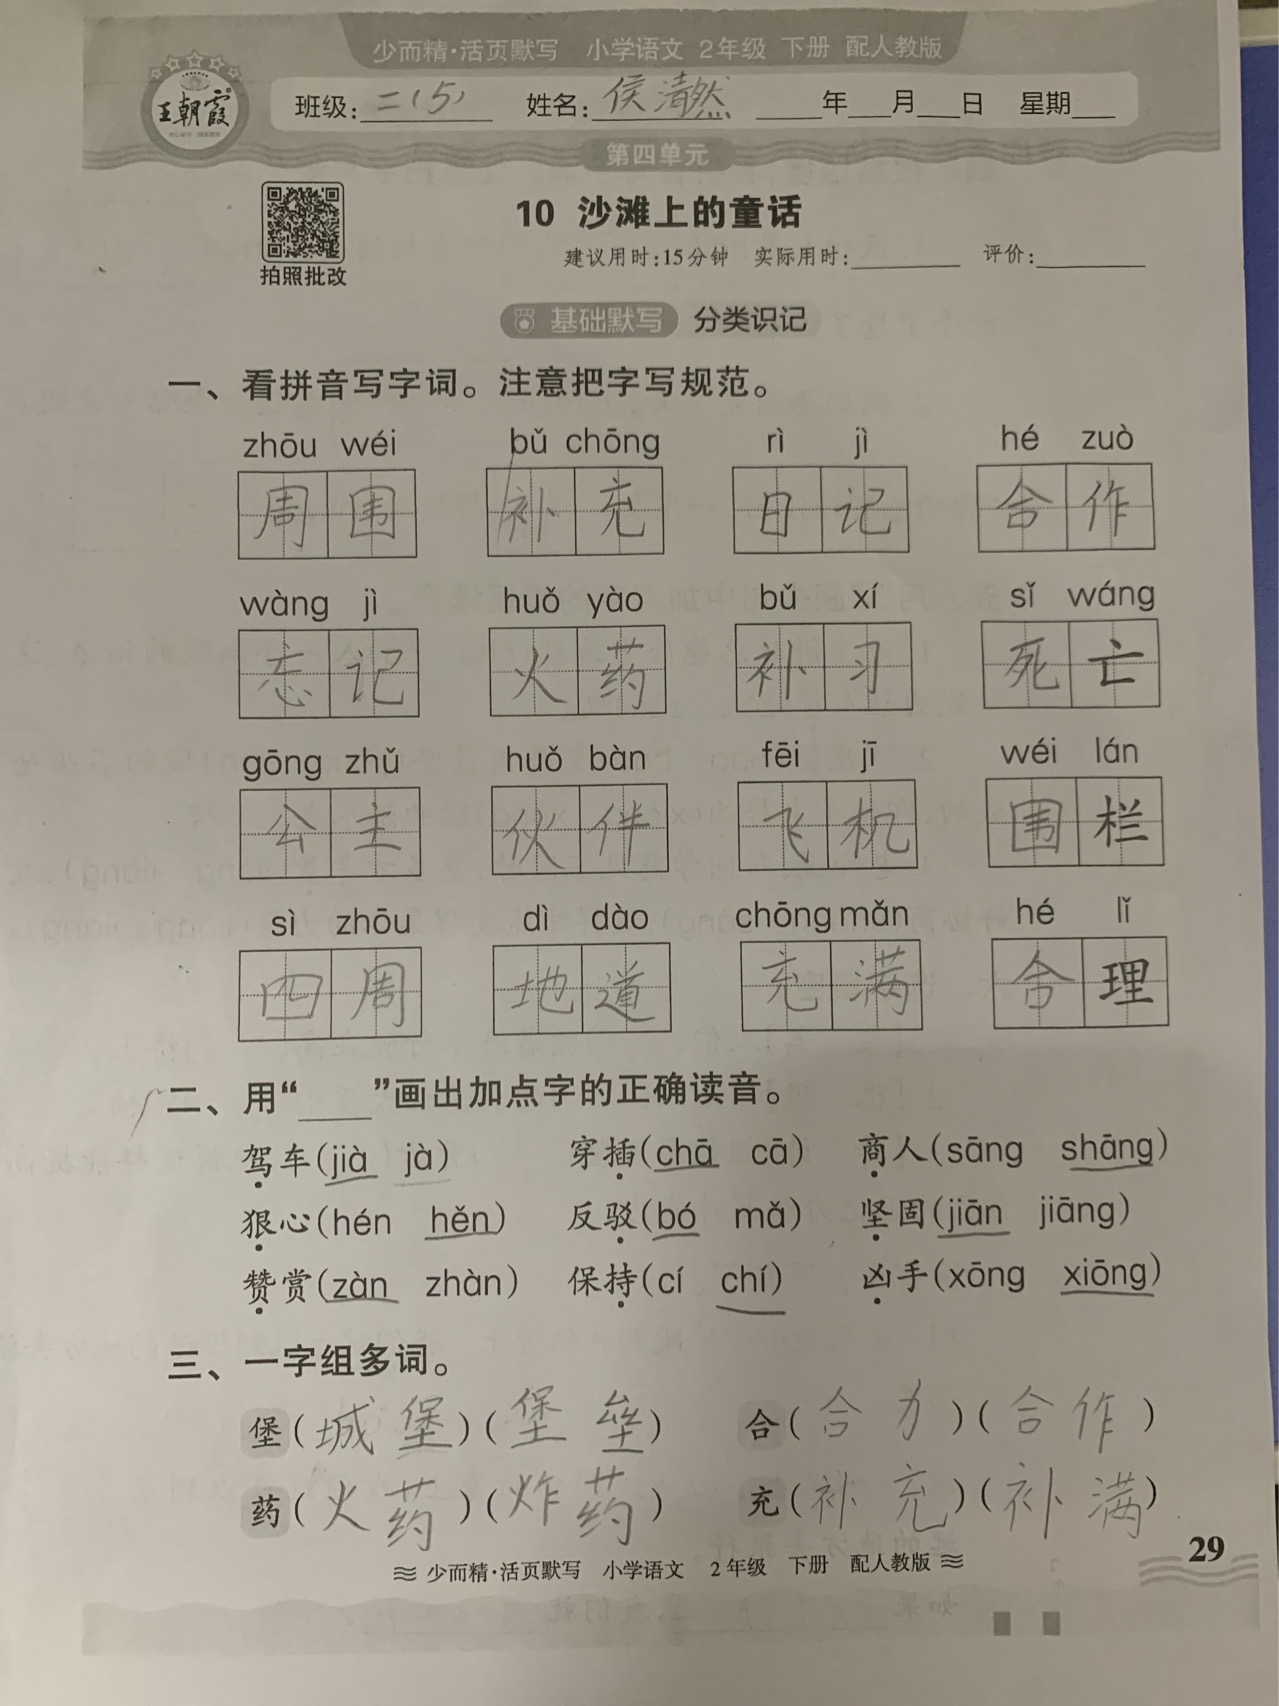 少而精·活页默写 小学语文 2年级 下册 配人教版
王朝霞
班级:二(5) 姓名:侯清然 ____年___月___日 星期___
第四单元
10 沙滩上的童话
拍照批改
建议用时:15分钟 实际用时:________ 评价:________
基础默写 分类识记
一、看拼音写字词。注意把字写规范。
zhōu wéi bǔ chōng rì jì hé zuò
周围 补充 日记 合作
wàng jì huǒ yào bǔ xí sǐ wáng
忘记 火药 补习 死亡
gōng zhǔ huǒ bàn fēi jī wéi lán
公主 伙伴 飞机 围栏
sì zhōu dì dào chōng mǎn hé lǐ
四周 地道 充满 合理
二、用“____”画出加点字的正确读音。
驾车(jià jà) 穿插(chā cā) 商人(sāng shāng)
狠心(hén hěn) 反驳(bó mǎ) 坚固(jiān jiāng)
赞赏(zàn zhàn) 保持(cí chí) 凶手(xōng xiōng)
三、一字组多词。
堡(城堡)(堡垒) 合(合力)(合作)
药(火药)(炸药) 充(补充)(补满)
29
少而精·活页默写 小学语文 2年级 下册 配人教版